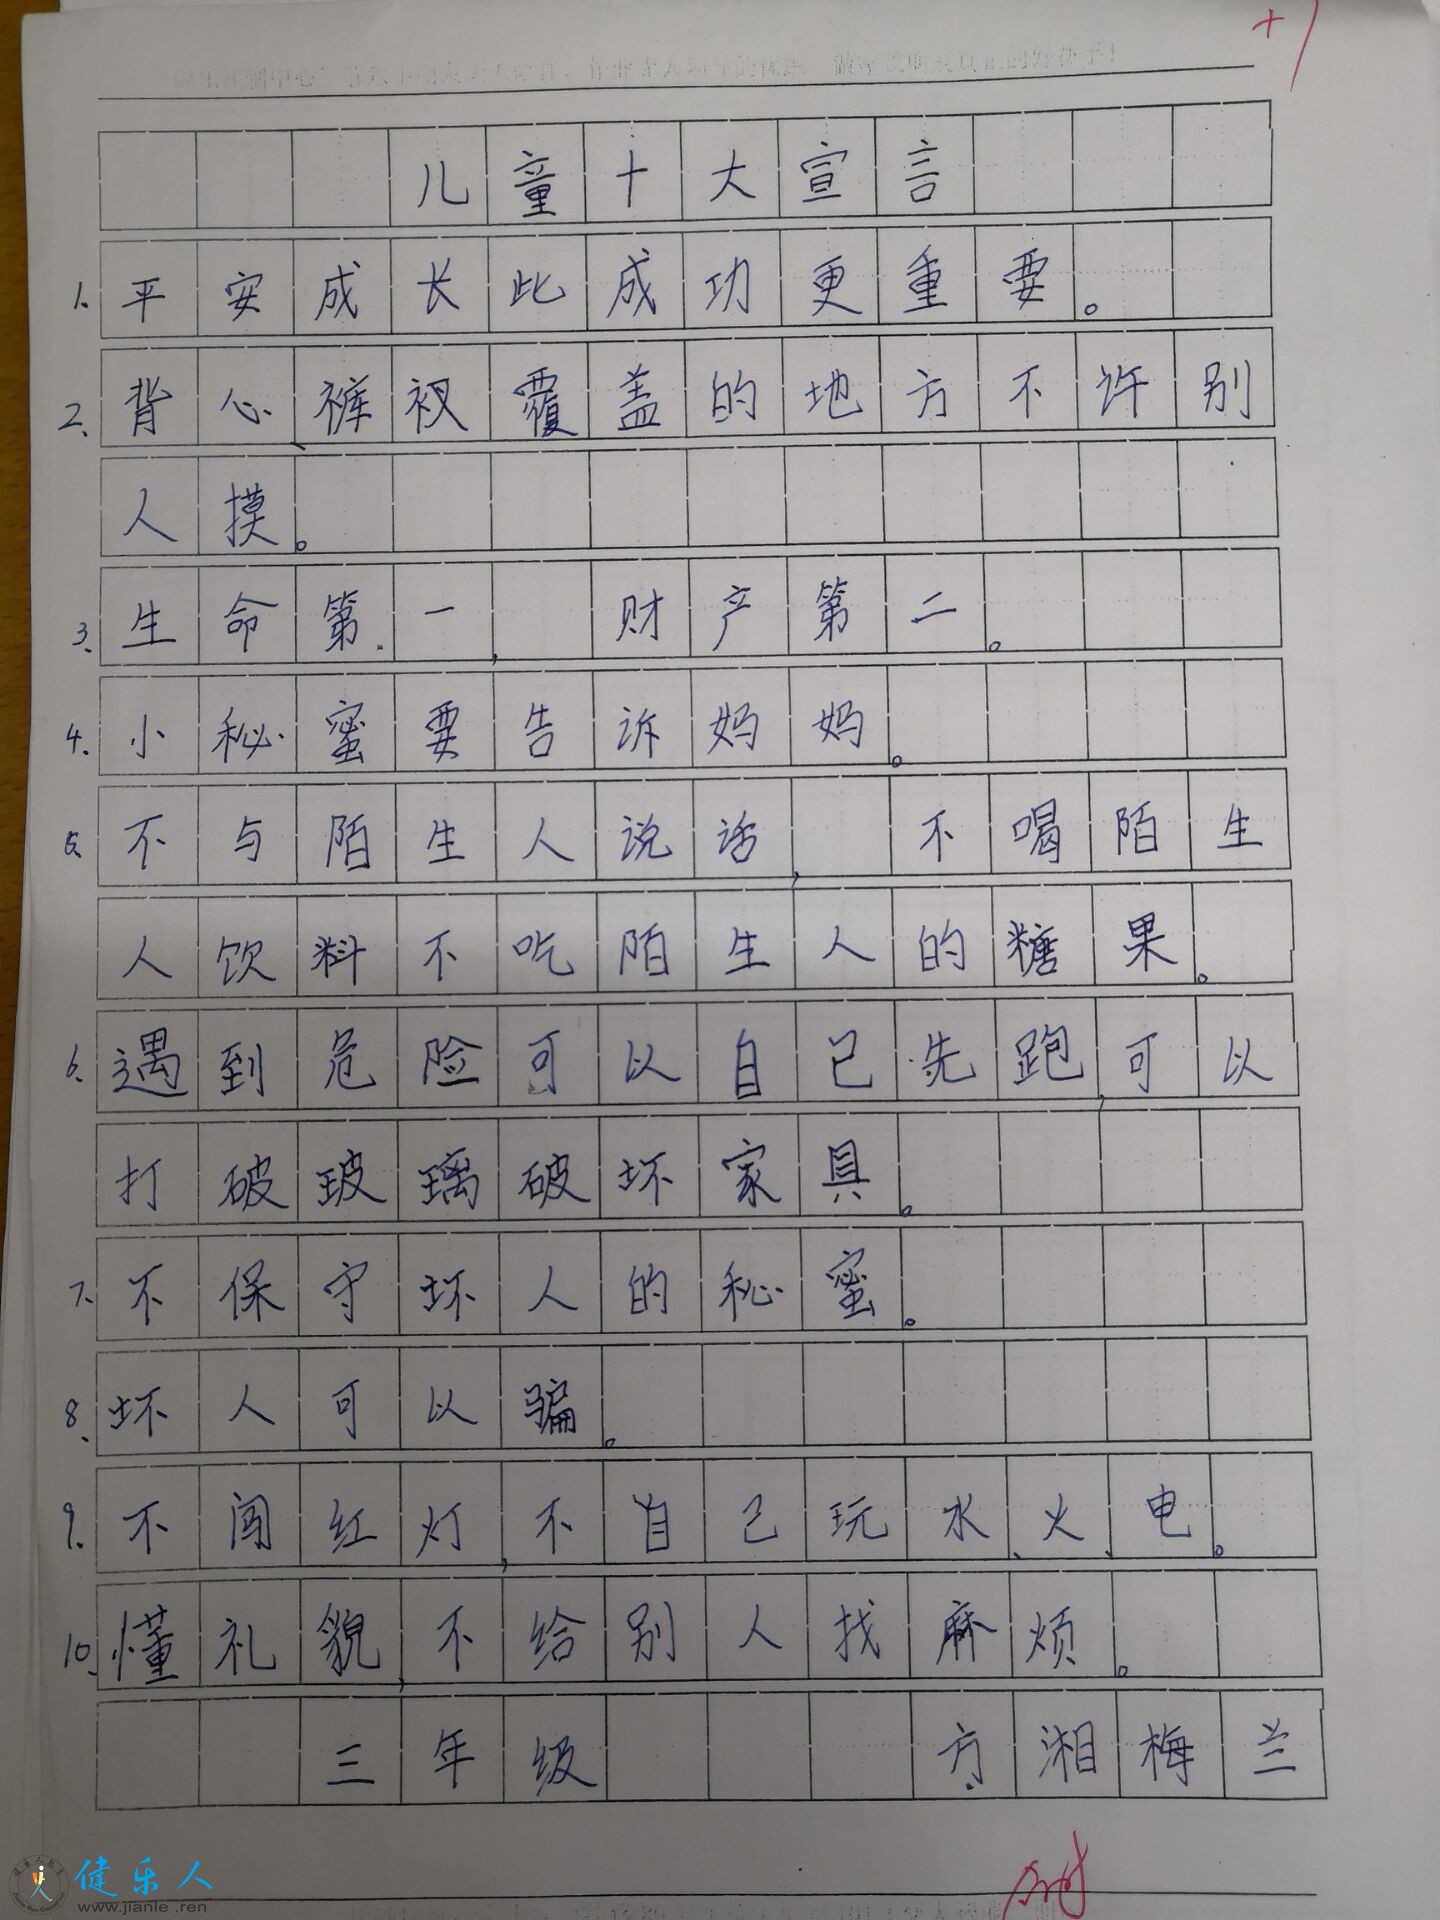 儿童十大宣言
1、平安成长此成功更重要。
2、背心、裤衩覆盖的地方不许别
人摸。
3、生命第一,财产第二。
4、小秘蜜要告诉妈妈。
5、不与陌生人说话,不喝陌生
人饮料不吃陌生人的糖果。
6、遇到危险可以自己先跑,可以
打破玻璃破坏家具。
7、不保守坏人的秘蜜。
8、坏人可以骗。
9、不闯红灯,不自己玩水、火、电。
10、懂礼貌,不给别人找麻烦。
三年级 方湘梅兰
健乐人
www.jianle.ren